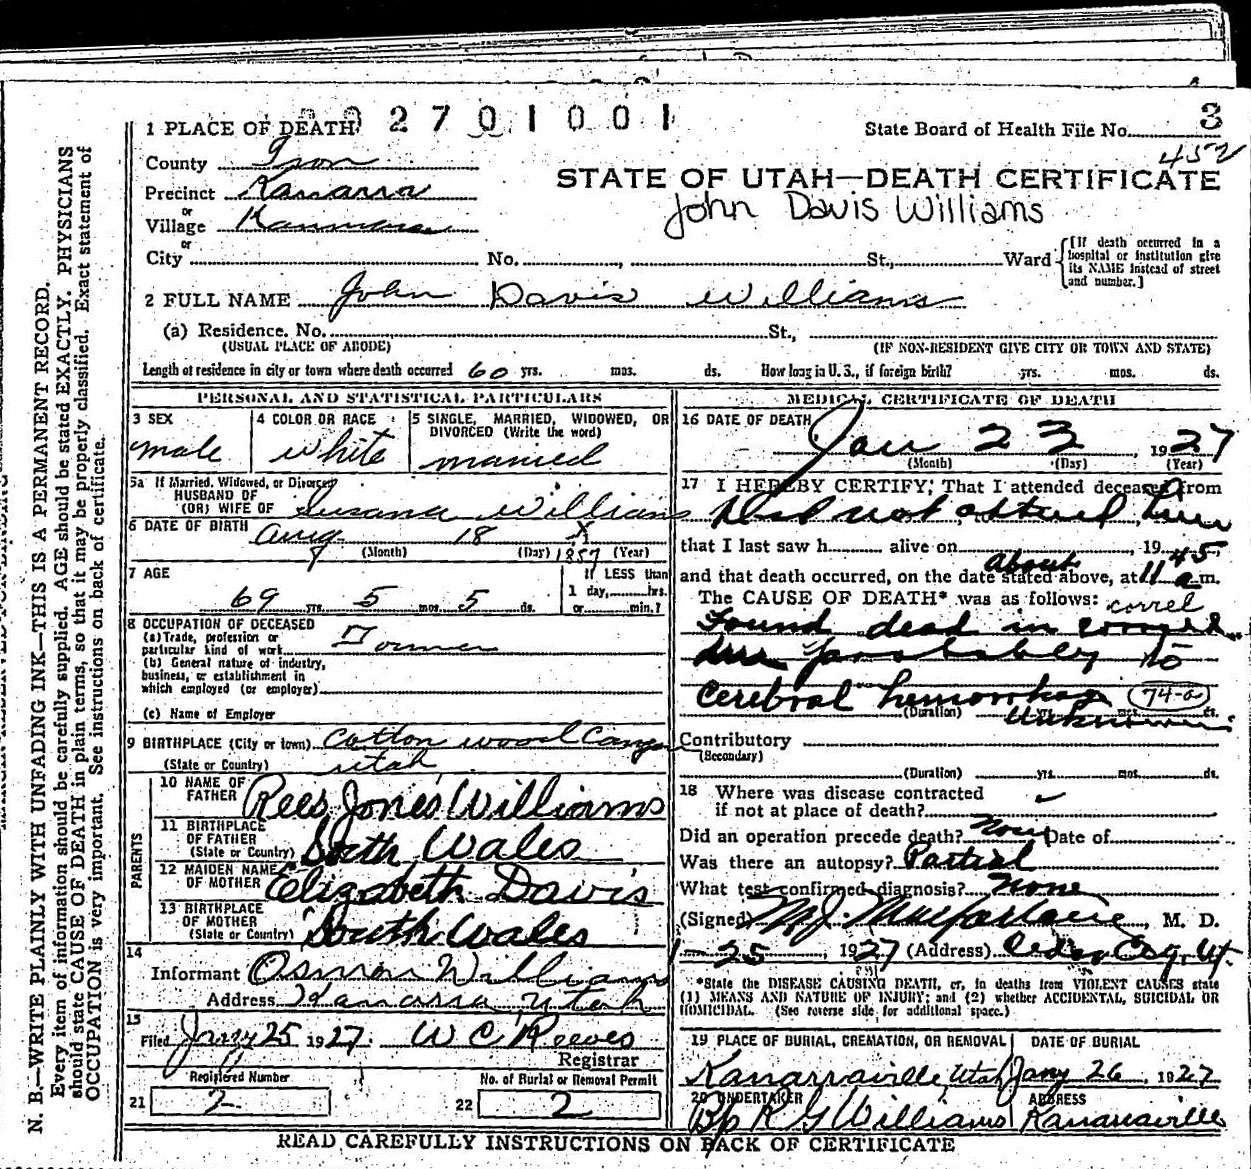 2701001
1 PLACE OF DEATH
State Board of Health File No. 3
452
County Iron
STATE OF UTAH—DEATH CERTIFICATE
Precinct Kanarra
John Davis Williams
or
Village
or
City No. , St., Ward
[If death occurred in a hospital or institution give its NAME instead of street and number.]
2 FULL NAME John Davis Williams
(a) Residence. No. St.,
(USUAL PLACE OF ABODE) (IF NON-RESIDENT GIVE CITY OR TOWN AND STATE)
Length of residence in city or town where death occurred 60 yrs. mos. ds. How long in U. S., if foreign birth? yrs. mos. ds.
PERSONAL AND STATISTICAL PARTICULARS
3 SEX
male
4 COLOR OR RACE
white
5 SINGLE, MARRIED, WIDOWED, OR
DIVORCED (Write the word)
married
5a If Married, Widowed, or Divorced
HUSBAND OF
(OR) WIFE OF Susana Williams
6 DATE OF BIRTH Aug 18 1857
(Month) (Day) (Year)
7 AGE
69 yrs. 5 mos. 5 ds.
If LESS than
1 day, hrs.
or min.?
8 OCCUPATION OF DECEASED
(a) Trade, profession or
particular kind of work Farmer
(b) General nature of industry,
business, or establishment in
which employed (or employer)
(c) Name of Employer
9 BIRTHPLACE (City or town) Cotton wood Canyon
(State or Country) Utah
PARENTS
10 NAME OF
FATHER Rees Jones Williams
11 BIRTHPLACE
OF FATHER
(State or Country) South Wales
12 MAIDEN NAME
OF MOTHER Elizabeth Davis
13 BIRTHPLACE
OF MOTHER
(State or Country) South Wales
14
Informant Osmon Williams
Address Kanarra Utah
15
Filed Jany 25 1927. W C Reeves
Registrar
Registered Number
21 2
No. of Burial or Removal Permit
22 2
MEDICAL CERTIFICATE OF DEATH
16 DATE OF DEATH
Jan 23, 1927
(Month) (Day) (Year)
17 I HEREBY CERTIFY, That I attended deceased from
Did not attend him
that I last saw h alive on , 19
about 45
and that death occurred, on the date stated above, at 11 a m.
The CAUSE OF DEATH* was as follows:
correl
Found dead in
due probably to
cerebral hemorrhag 74-a
(Duration) yrs. mos. ds.
unknown
Contributory
(Secondary)
(Duration) yrs. mos. ds.
18 Where was disease contracted
if not at place of death?
Did an operation precede death? None Date of
Was there an autopsy? Partial
What test confirmed diagnosis? None
(Signed) M. J. Macfarlane, M. D.
1-25, 1927 (Address) Cedar City, Ut.
*State the DISEASE CAUSING DEATH, or, in deaths from VIOLENT CAUSES state
(1) MEANS AND NATURE OF INJURY; and (2) whether ACCIDENTAL, SUICIDAL OR
HOMICIDAL. (See reverse side for additional space.)
19 PLACE OF BURIAL, CREMATION, OR REMOVAL
Kanarraville, Utah
DATE OF BURIAL
Jany 26, 1927
20 UNDERTAKER
Bp R G Williams
ADDRESS
Kanarraville
READ CAREFULLY INSTRUCTIONS ON BACK OF CERTIFICATE
N. B.—WRITE PLAINLY WITH UNFADING INK—THIS IS A PERMANENT RECORD.
Every item of information should be carefully supplied. AGE should be stated EXACTLY. PHYSICIANS
should state CAUSE OF DEATH in plain terms, so that it may be properly classified. Exact statement of
OCCUPATION is very important. See instructions on back of certificate.